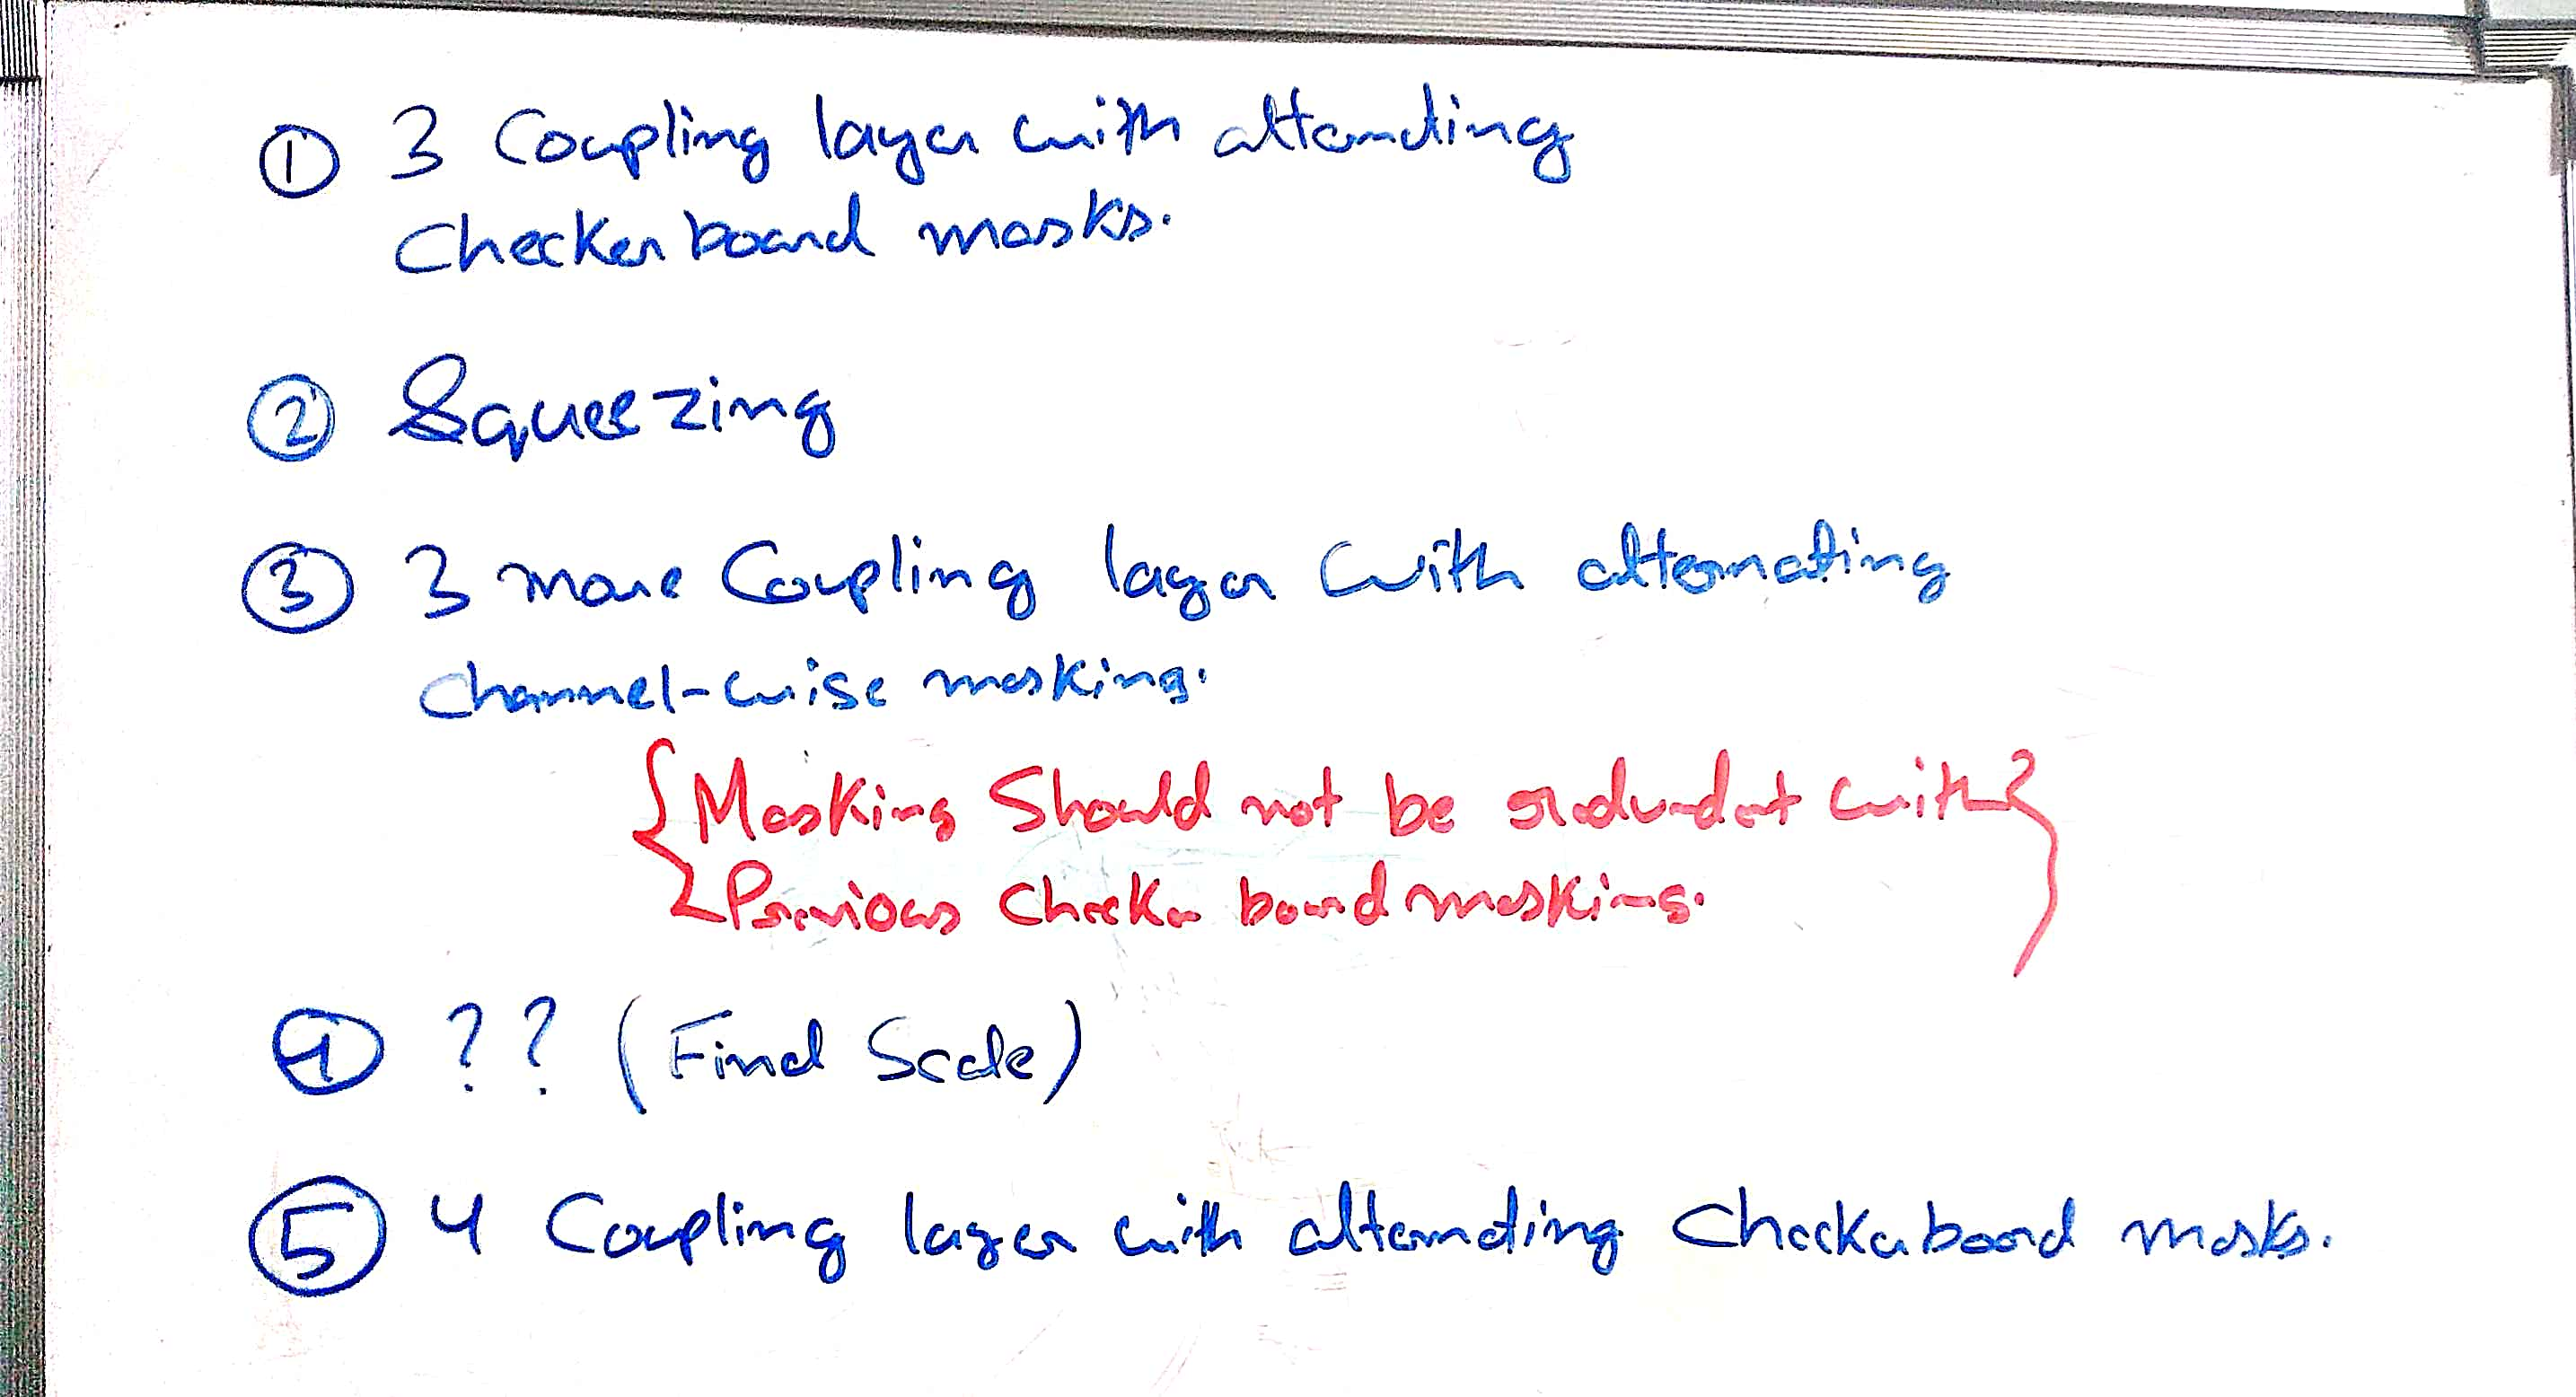 ① 3 Coupling layer with alternating
Checkerboard masks.
② Squeezing
③ 3 more Coupling layer with alternating
channel-wise masking.
{Masking Should not be redundat with}
Previous Checker board masking.
④ ?? (Final Scale)
⑤ 4 Coupling layer with alternating Checkerboard masks.